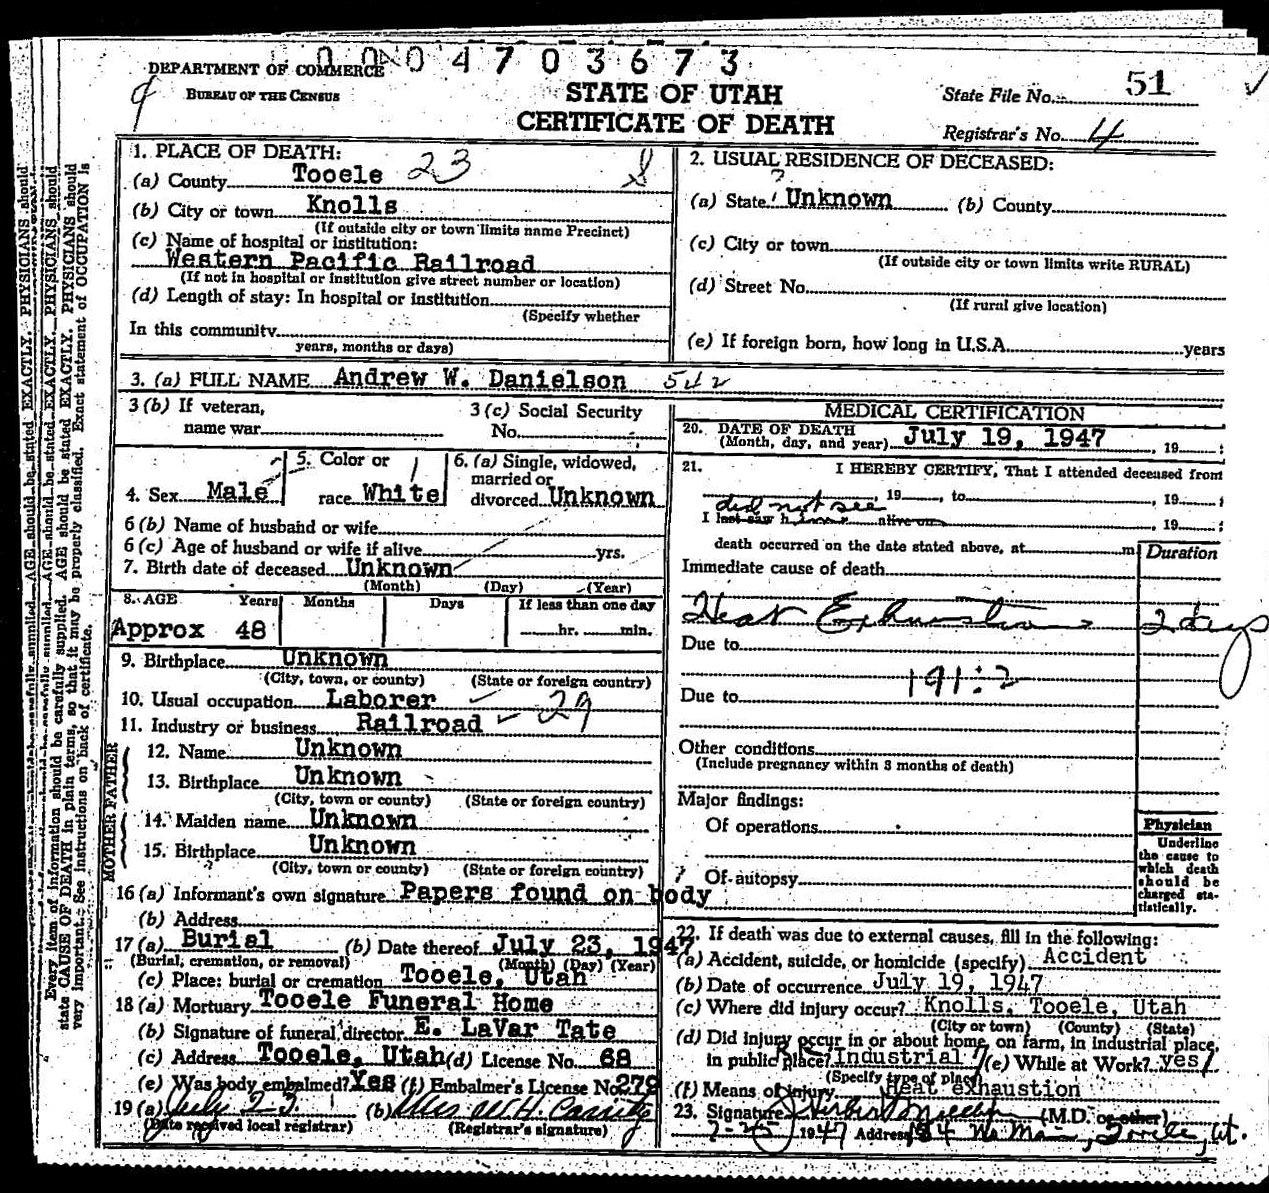 0 0 0 4 7 0 3 6 7 3
DEPARTMENT OF COMMERCE
BUREAU OF THE CENSUS
STATE OF UTAH
CERTIFICATE OF DEATH
State File No. 51
Registrar's No. 4
1. PLACE OF DEATH:
(a) County Tooele 23
(b) City or town Knolls
(If outside city or town limits name Precinct)
(c) Name of hospital or institution:
Western Pacific Railroad
(If not in hospital or institution give street number or location)
(d) Length of stay: In hospital or institution
(Specify whether
In this community
years, months or days)
2. USUAL RESIDENCE OF DECEASED:
(a) State Unknown (b) County
(c) City or town
(If outside city or town limits write RURAL)
(d) Street No.
(If rural give location)
(e) If foreign born, how long in U.S.A. years
3. (a) FULL NAME Andrew W. Danielson
3 (b) If veteran,
name war
3 (c) Social Security
No.
4. Sex Male
5. Color or
race White
6. (a) Single, widowed,
married or
divorced Unknown
6 (b) Name of husband or wife
6 (c) Age of husband or wife if alive yrs.
7. Birth date of deceased Unknown
(Month) (Day) (Year)
8. AGE Years Months Days If less than one day
Approx 48 hr. min.
9. Birthplace Unknown
(City, town, or county) (State or foreign country)
10. Usual occupation Laborer
11. Industry or business Railroad 29
FATHER
12. Name Unknown
13. Birthplace Unknown
(City, town or county) (State or foreign country)
MOTHER
14. Maiden name Unknown
15. Birthplace Unknown
(City, town or county) (State or foreign country)
16 (a) Informant's own signature Papers found on body
(b) Address
17 (a) Burial (b) Date thereof July 23, 1947
(Burial, cremation, or removal) (Month) (Day) (Year)
(c) Place: burial or cremation Tooele, Utah
18 (a) Mortuary Tooele Funeral Home
(b) Signature of funeral director E. LaVar Tate
(c) Address Tooele, Utah (d) License No. 68
(e) Was body embalmed? Yes (f) Embalmer's License No. 279
19 (a) July 23. (b) Mrs W.H. Cassity
(Date received local registrar) (Registrar's signature)
MEDICAL CERTIFICATION
20. DATE OF DEATH
(Month, day, and year) July 19, 1947 , 19
21. I HEREBY CERTIFY, That I attended deceased from
, 19 , to , 19 ;
did not see
I last saw h alive on , 19 ;
death occurred on the date stated above, at m
Duration
Immediate cause of death
Heat Exhaustion 2 days
Due to
191:2
Due to
Other conditions
(Include pregnancy within 3 months of death)
Major findings:
Of operations
Of autopsy
Physician
Underline
the cause to
which death
should be
charged sta-
tistically.
22. If death was due to external causes, fill in the following:
(a) Accident, suicide, or homicide (specify) Accident
(b) Date of occurrence July 19, 1947
(c) Where did injury occur? Knolls, Tooele, Utah
(City or town) (County) (State)
(d) Did injury occur in or about home, on farm, in industrial place,
in public place? Industrial (e) While at Work? yes
(Specify type of place)
(f) Means of injury Heat exhaustion
23. Signature (M.D. or other)
7-25 1947 Address 184 No Main, Tooele, Ut.
Every item of information should be carefully supplied. AGE should be stated EXACTLY. PHYSICIANS should
state CAUSE OF DEATH in plain terms, so that it may be properly classified. Exact statement of OCCUPATION is
very important. See instructions on back of certificate.